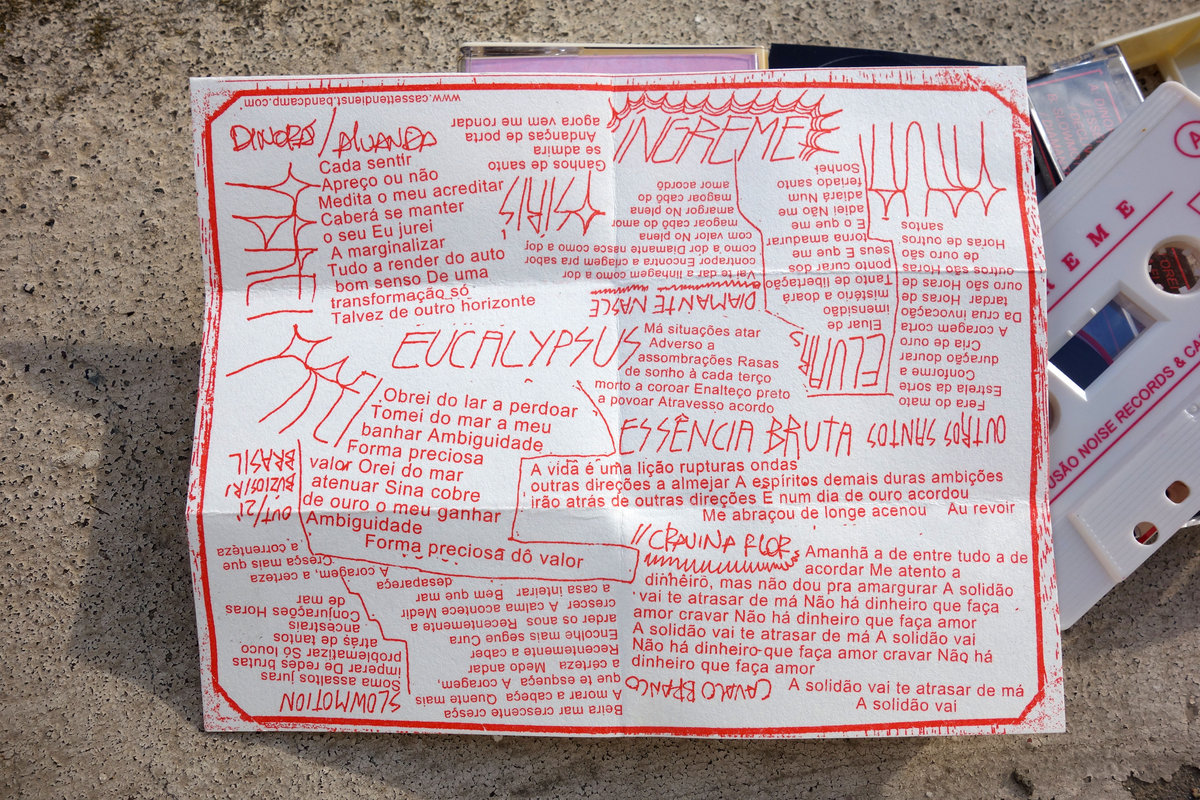 DINORÁ / ALUANDA
Cada sentir
Apreço ou não
Medita o meu acreditar
Caberá se manter
o seu Eu jurei
A marginalizar
Tudo a render do auto
bom senso De uma
transformação só
Talvez de outro horizonte
www.cassettendienst.bandcamp.com
ISIRIS
Ganhos de santo
se admira
Andanças de porta
agora vem me rondar
INGREME
DIAMANTE NASCE
Vai te dar linhagem como a dor
contrapor Encontra a criagem pra sabor
como a dor Diamante nasce como a dor
com valor No plena
magoar cabo do amor
amargor No plena
magoar cabo do
amor acordo
ELUAR
Eluar de
imensidão
mistério a doara
Tanto de libertação
ponto curar dos
seus E que me
torna amadurar
E o que e me
adiei Não me
adiará Num
feriado santo
Sonhei
OUTROS SANTOS
Fera do mato
Estrela da sorte
Conforme a
duração dourar
Cria de ouro
A coragem corta
Da crua invocação
tardar Horas de
ouro são Horas de
outros são Horas
de ouro de
Horas de outros
santos
EUCALYPSUS
Má situações atar
Adverso a
assombrações Rasas
de sonho à cada terço
morto a coroar Enalteço preto
a povoar Atravesso acordo
Obrei do lar a perdoar
Tomei do mar a meu
banhar Ambiguidade
Forma preciosa
valor Orei do mar
atenuar Sina cobre
de ouro o meu ganhar
Ambiguidade
Forma preciosa do valor
ESSÊNCIA BRUTA
A vida é uma lição rupturas ondas
outras direções a almejar A espíritos demais duras ambições
irão atrás de outras direções E num dia de ouro acordou
Me abraçou de longe acenou Au revoir
OUT/21
BUZIOS/RJ
BRASIL
// CRAVINA FLOR
Amanhã a de entre tudo a de
acordar Me atento a
dinheiro, mas não dou pra amargurar A solidão
vai te atrasar de má Não há dinheiro que faça
amor cravar Não há dinheiro que faça amor
A solidão vai te atrasar de má A solidão vai
Não há dinheiro que faça amor cravar Não há
dinheiro que faça amor
A solidão vai te atrasar de má
A solidão vai
SLOWMOTION
Soma assaltos juras
imperar De redes brutas
problematizar Só louco
atrás de tantos
ancestrais
Conjurações Horas
de mar
CAVALO BRANCO
Beira mar crescente cresça
A morar a cabeça Quente mais
que te esqueça A coragem,
a certeza Medo andar
Recentemente a caber
Encolhe mais segue Cura
arder os anos Recentemente
crescer A calma acontece Medir
a casa inteirar Bem que mar
desaparença
A coragem, a certeza
Cresça mais que
a correnteza
EME
USÃO NOISE RECORDS & CA
A